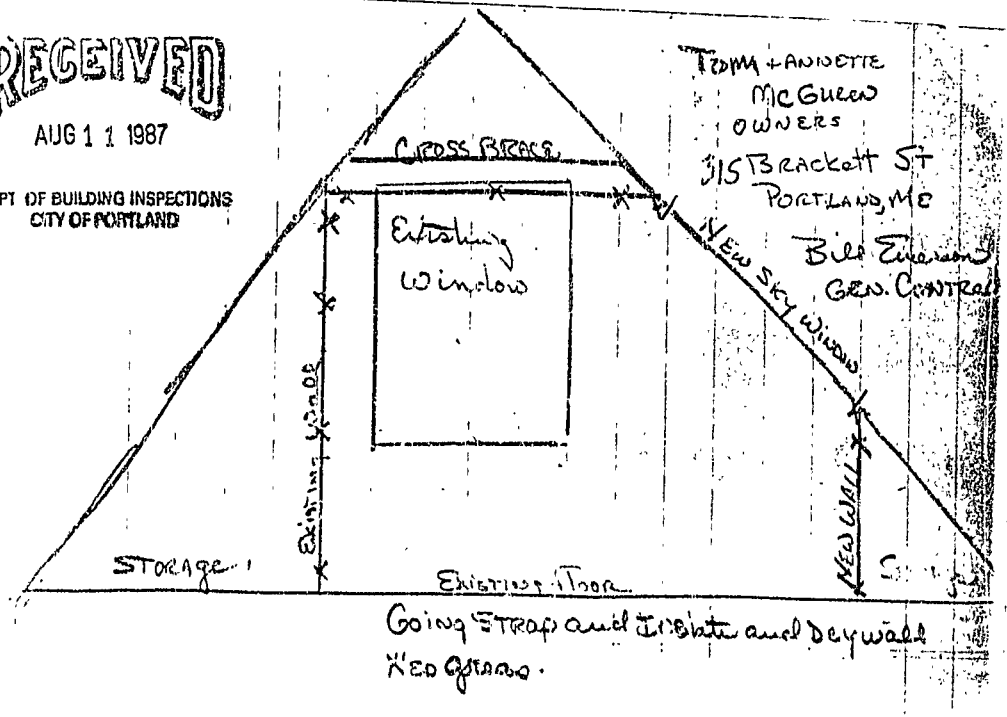 RECEIVED
AUG 11 1987
PT OF BUILDING INSPECTIONS
CITY OF PORTLAND
+ ANNETTE
OWNERS
315 BRACKETT ST
PORTLAND, ME
Bill Emerson
GEN. CONTRAC
CROSS BRACE
Existing
Window
NEW SKY WINDOW
EXISTING WALL
NEW WALL
STORAGE
EXISTING FLOOR
Going STRAP and and Drywall